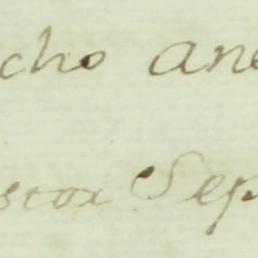 cho ane
stox Sep